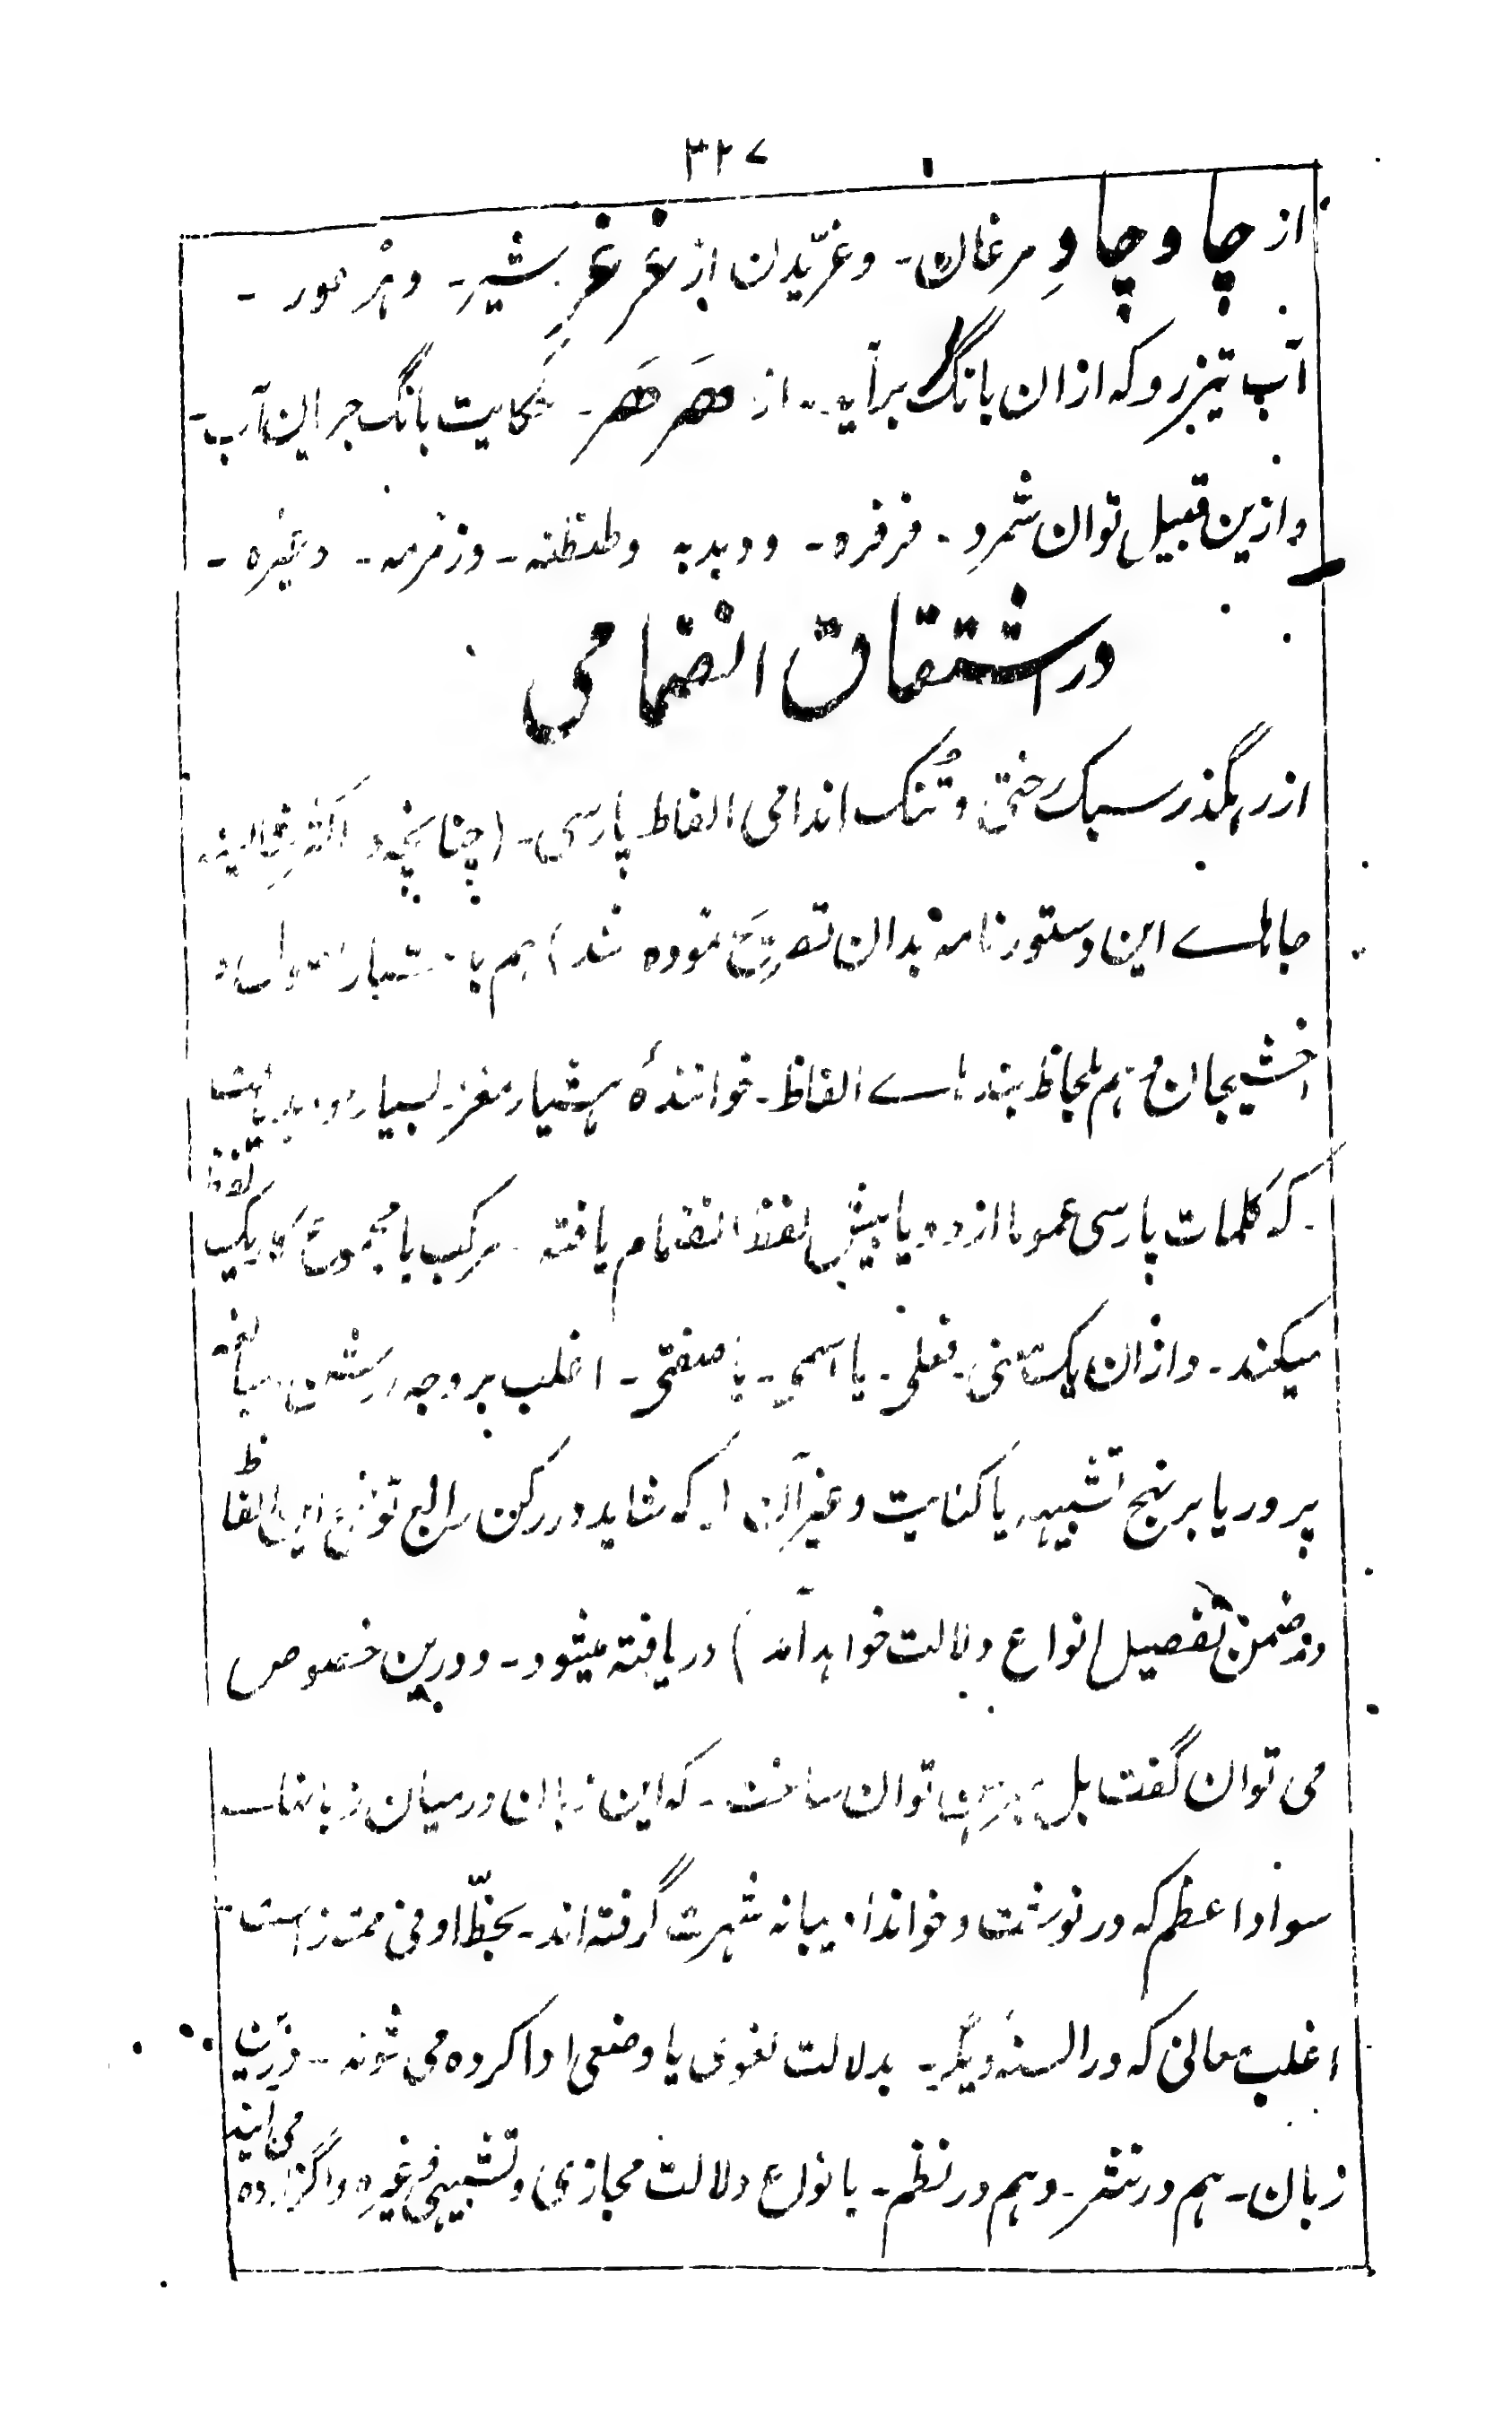 ۳۲۷
از چاو چاوِ مرغان۔ و غرّیدن از غر غرِ شیر۔ و ہژ مور۔
آب تیز رو کہ ازان بانگ برآید۔ از ھَر ھَر۔ حکایت بانگ جریان آب۔
و ازین قبیل توان شمرد۔ فرفرہ۔ و دبدبہ و طنطنہ۔ و زمزمہ۔ و غیرہ۔
در اشتقاق انضمامی
از رہگذر سبک ختی و تُنک اندامی الفاظ پارسی۔ (چنانچہ در اکثر
جاہاے این دستور نامہ بدان تصریح نمودہ شد) ہم باعتبار اصول و
اخشیجان و ہم بلحاظ بندہاے الفاظ۔ خوانندۂ ہشیار مغز۔ بسیار
کہ کلمات پارسی عموما از دو یا بیش لفظ انضمام یافتہ۔ مرکب با مجموع کار یک لفظ
میکند۔ و ازان یک معنی۔ فعلی۔ یا اسمی۔ یا صفتی۔ اغلب بر وجہ مبالغہ
پرور یا بر نہج تشبیہ۔ یا کنایت و غیر آن (کہ شاید در رکن رابع توضیح این الفاظ
در ضمن تفصیل انواع دلالت خواہد آمد) دریافتہ میشود۔ و درین خصوص
می توان گفت بل توان ساخت۔ کہ این زبان درمیان زبانہاے
سواد اعظم کہ در نوشت و خواند ادیبانہ شہرت گرفتہ اند۔ بحظّ اوفی ممتاز است
اغلب معانی کہ در السنۂ دیگر۔ بدلالت لغوی یا وضعی ادا کردہ می شوند۔ درین
زبان۔ ہم در نثر۔ و ہم در نظم۔ بانواع دلالت مجازی و تشبیہی و غیرہ واگزاردہ می آیند